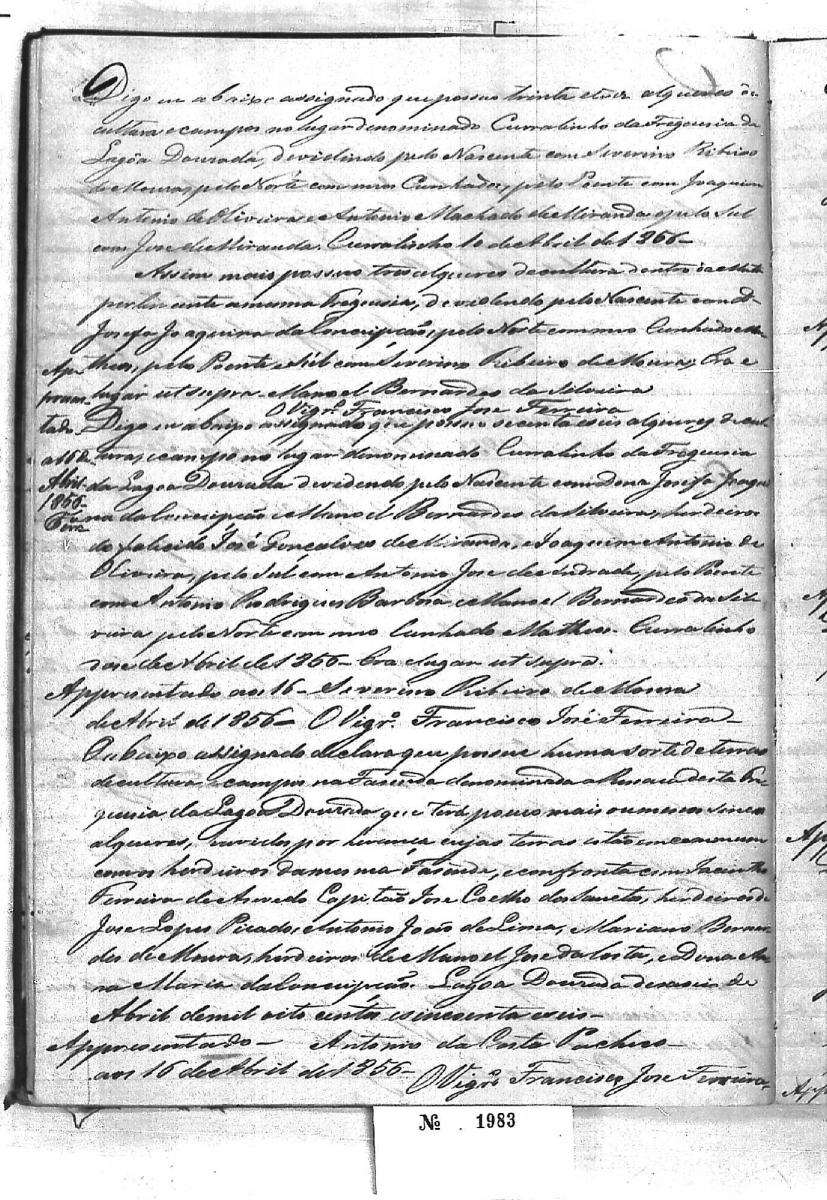 Digo eu abaixo assignado que possuo trinta e tres alqueres de
cultura e campos no lugar denominado Curralinho da Freguesia da
Lagôa Dourada, devidindo pelo Nascente com Severino Ribeiro
de Moura, pelo Norte com meos Cunhados, pelo Poente com Joaquim
Antonio de Oliveira e Antonio Machado de Miranda, e pelo Sul
com Jose de Miranda. Curralinho 10 de Abril de 1856-
Assim mais possuo tres alqueres de cultura dentro da
pertencente a mesma Freguesia, devidendo pelo Nascente com D.
Josefa Joaquina da Concipção, pelo Norte com meo Cunhado Ma-
theos, pelo Poente e Sul com Severino Ribeiro de Moura, Era e
lugar ut supra- Manoel Bernardes da Silveira
O Vigrº Francisco Jose Ferreira
Apprezentado a 16 de Abril 1856-
Digo eu abaixo assignado que possuo secenta e seis alqueres de cul
tura, e campo no lugar denominado Curralinho da Freguesia
da Lagoa Dourada devidendo pelo Nascente com Dona Josefa Joaqui
na da Concipção e Manoel Bernardes da Silveira, herdeiros
do falicido José Gonçalves de Miranda, e Joaquim Antonio de
Oliveira, pelo Sul com Antonio Jose de Andrade, pelo Poente
com Antonio Rodrigues Barbosa e Manoel Bernardes da Sil
veira pelo Norte com meo Cunhado Matheos. Curralinho
de Abril de 1856- Era e lugar ut supra.
Appresentado aos 16- Severino Ribeiro de Moura
de Abril de 1856- O Vigrº. Francisco José Ferreira-
O abaixo assignado declara que possue huma sorte de terras
de cultura e campos na Fasenda denominada a desta Fre
guesia da Lagôa Dourada que terá pouco mais ou menos sinco
alqueres, havidos por herança cujas terras estão em commum
com os herdeiros da mesma Fasenda, e confronta com Jacintho
Ferreira de Asevedo Capitão Jose Coelho dos Santos, herdeiros de
Jose Lopes Picado, Antonio João de Lima, Mariano Bernar
des de Moura, herdeiros de Manoel Jose da Costa, e Dona An
na Maria da Concipção. Lagôa Dourada deseseis de
Abril de mil oito centos e sincoenta e seis-
Appresentado- Antonio da Costa Pacheco-
aos 16 de Abril de 1856- O Vigrº Francisco Jose Ferreira
Nº 1983